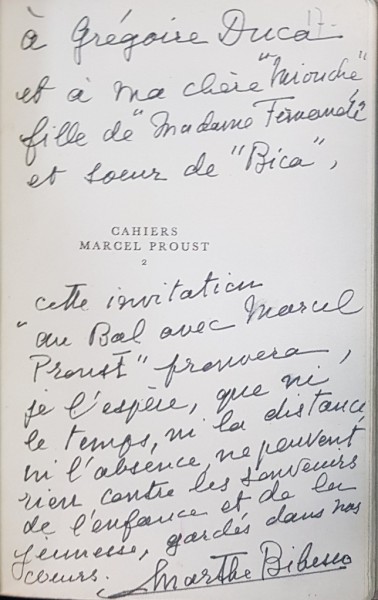 à Grégoire Duca
et à ma chère "Miouche"
fille de "Madame Fernande"
et soeur de "Bica",
CAHIERS
MARCEL PROUST
2
cette invitation
"au Bal avec Marcel
Proust" prouvera,
je l'espère, que ni
le temps, ni la distance,
ni l'absence, ne peuvent
rien contre les souvenirs
de l'enfance et de la
jeunesse, gardés dans nos
coeurs. Marthe Bibesco